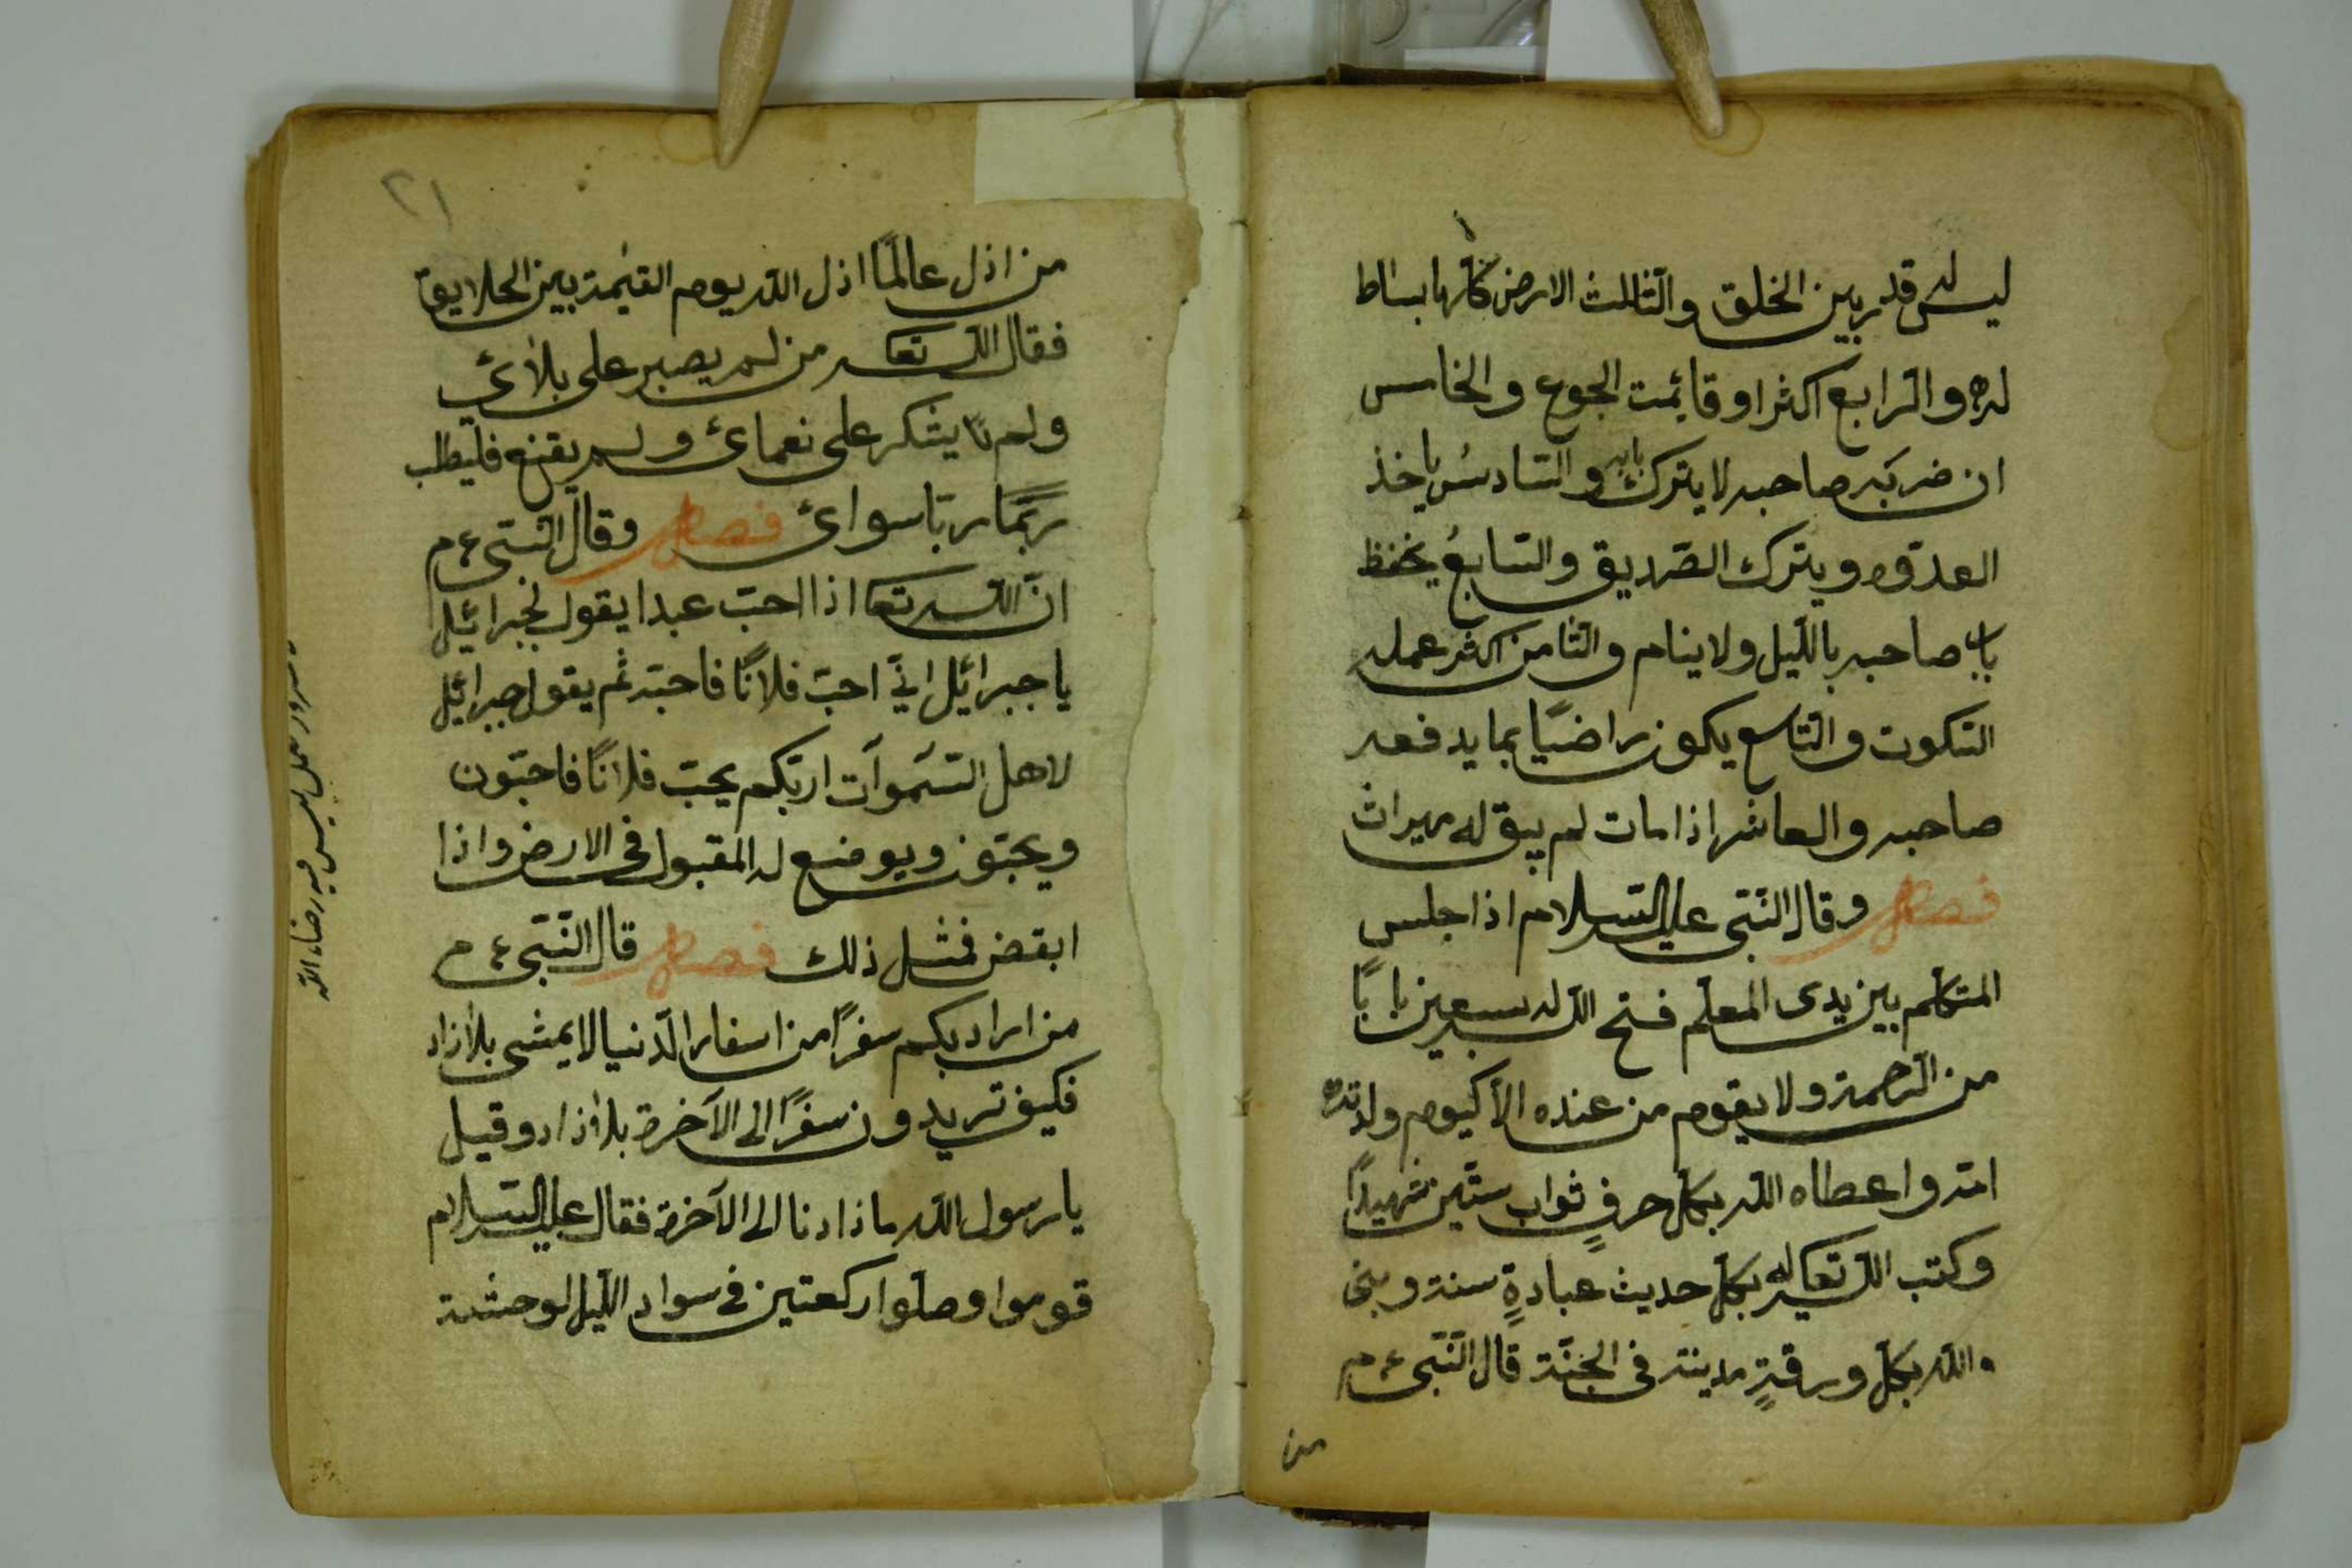 ليس له قدر بين الخلق والثالث الارض كلها بساط
له والرابع اكثر اوقاته الجوع والخامس
ان ضربه صاحبه لا يترك بابه والسادس ياخذ
العدو ويترك الصديق والسابع يحفظ
باب صاحبه بالليل ولا ينام والثامن اكثر عمله
السكوت والتاسع يكون راضيًا بما يدفعه
صاحبه والعاشر اذا مات لم يبق له ميراث
فصل وقال النّبّى عليه السلام اذا جلس
المتكلم بين يدى المعلّم فتح الله له سبعين بابًا
من الرّحمة ولا يقوم من عنده الّا كيوم ولدته
امّه واعطاه الله بكلّ حرفٍ ثواب ستّين شهيدًا
وكتب الله تعا له بكلّ حديث عبادةٍ سنة وبنى
الله بكلّ ورقةٍ مدينة فى الجنّة قال النّبّى ع م
من
٢١
من اذل عالمًا اذل الله يوم القيمة بين الخلايق
فقال الله تعا من لم يصبر على بلائي
ولم يشكر على نعمائ ولم يقنع فليطلب
ربًّا سوائ فصل وقال النّبّى ع م
انّ الله تعا اذا احبّ عبدا يقول لجبرائيل
يا جبرائيل انّي احبّ فلانًا فاحبّه ثم يقول جبرائيل
لاهل السّموات ان ربّكم يحبّ فلانًا فاحبّون
ويحبّون ويوضع له المقبول فى الارض واذا
ابغض فمثل ذلك فصل قال النّبّى ع م
من اراد بكم سفرًا من اسفار الدّنيا لا يمشى بلا زاد
فكيف تريدون سفرًا الى الآخرة بلا زاد وقيل
يا رسول الله ما زادنا الى الآخرة فقال عليه السّلام
قوموا وصلّوا ركعتين فى سواد الليل لوحشة
رضاء الله